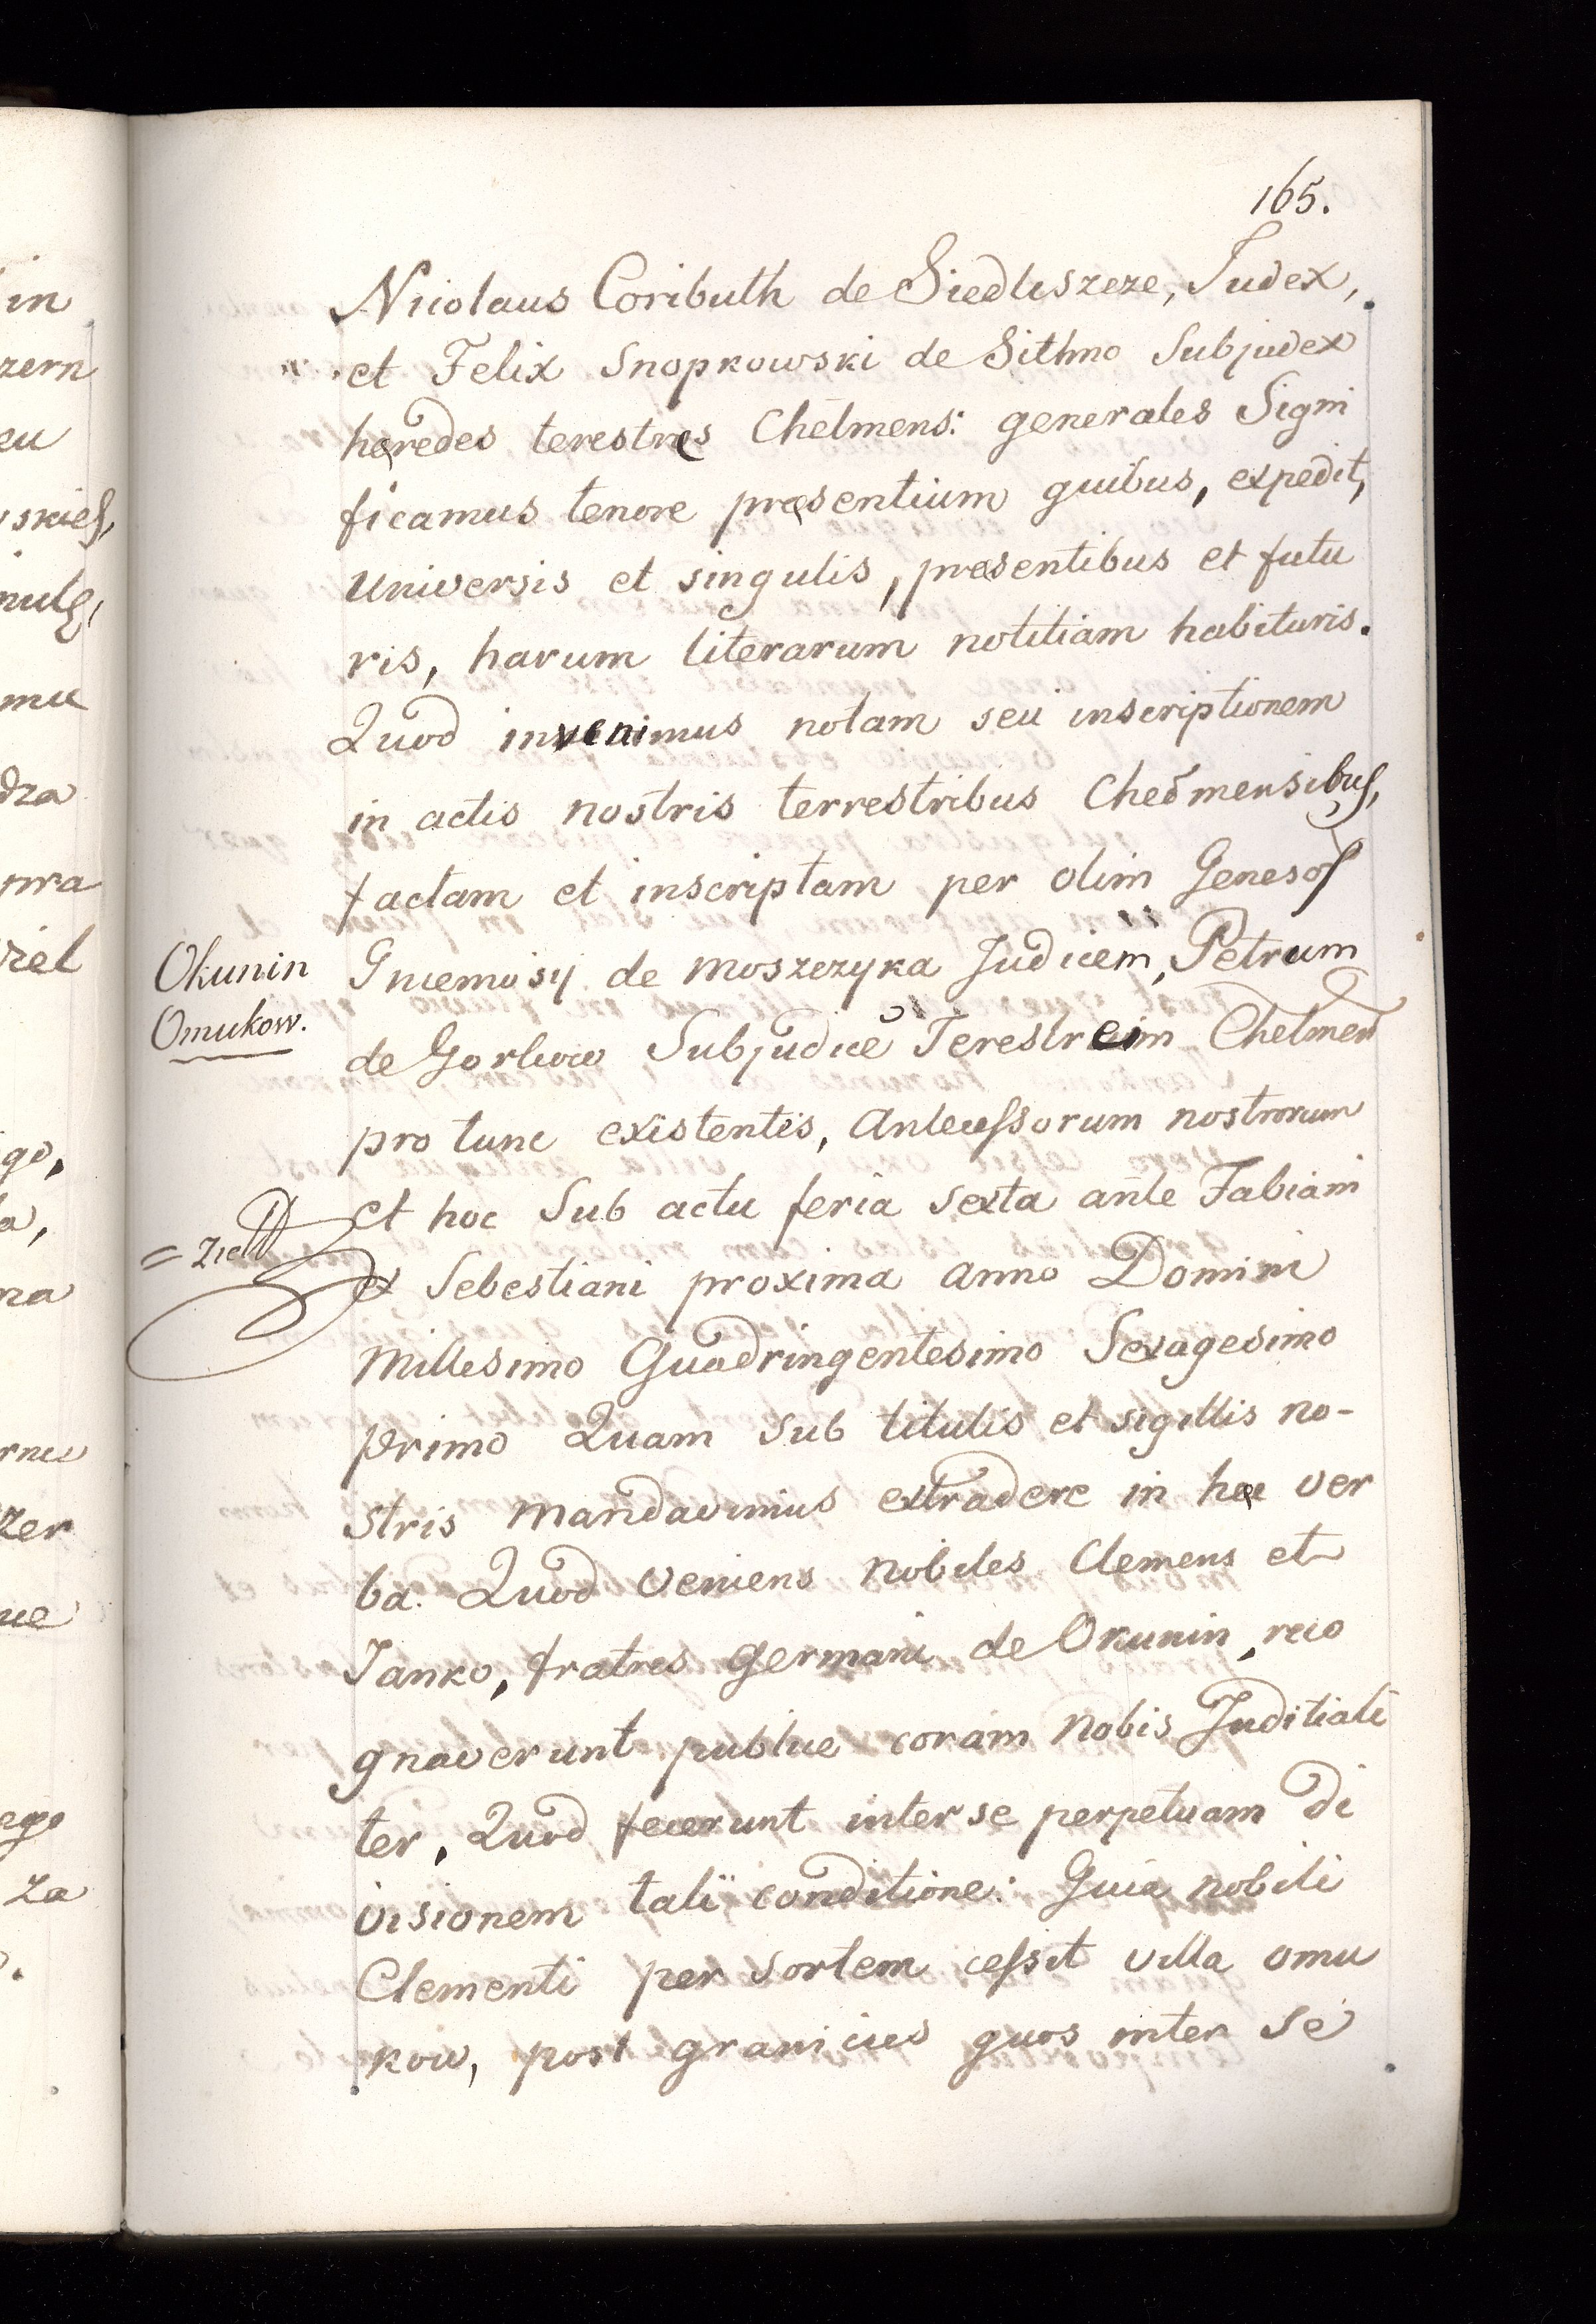 165.
Nicolaus Coributh de Siedliszcze, Judex,
et Felix Snopkowski de Sithno Subjudex
hęredes terestres Chełmens: generales Signi
ficamus tenore pręsentium quibus, expedit,
Universis et singulis, pręsentibus et futu
ris, harum literarum notitiam habituris.
Quod invenimus notam seu inscriptionem
in actis nostris terrestribus Chełmensibus,
factam et inscriptam per olim Generos
Okunin
Omukow.
Gniewosy de Moszczyka Judicem, Petrum
de Gorkow Subjudicē Terestreim Chelmen
pro tunc existentis, Antecessorum nostrorum
et hoc Sub actu feria sexta ante Fabiani
et Sebestiani proxima anno Domini
Millesimo Quadringentesimo Sexagesimo
primo Quam sub titulis et sigillis no-
stris mandavimus extradere in hęc ver
ba. Quod veniens nobiles Clemens et
Janko, fratres germani de Okunin, reco
gnaverunt publice coram nobis Juditiali
ter, Quod fecerunt inter se perpetuam di
visionem tali conditione: Quia nobili
Clementi per sortem cessit villa omu
kow, post granicies quos inter se
in
zern
eu
mu
dza
pra
ziel
go,
a,
na
zer
ue
ego
za